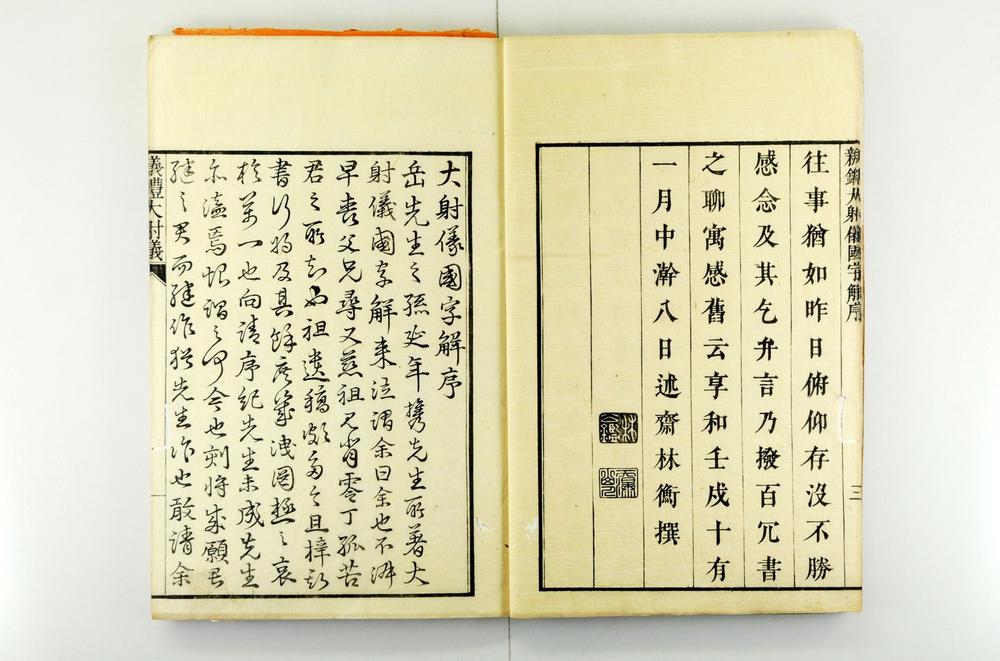 新鐫大射儀國字解序
三
往事猶如昨日俯仰存沒不勝
感念及其乞弁言乃撥百冗書
之聊寓感舊云享和壬戍十有
一月中澣八日述齋林衡撰
大射儀國字解序
岳先生之孫延年携先生所著大
射儀國字解来泣謂余曰余也不淑
早喪父兄尋又慈祖見背零丁孤苦
君之所知也祖遺稿頗多今且梓
書行将及其餘庶幾洩罔極之哀
於萬一也向請序紀先生未成先生
亦溘焉 謂之何今也刻将成願君
継之君而継作猶先生作也敢請余
儀禮大射義
一